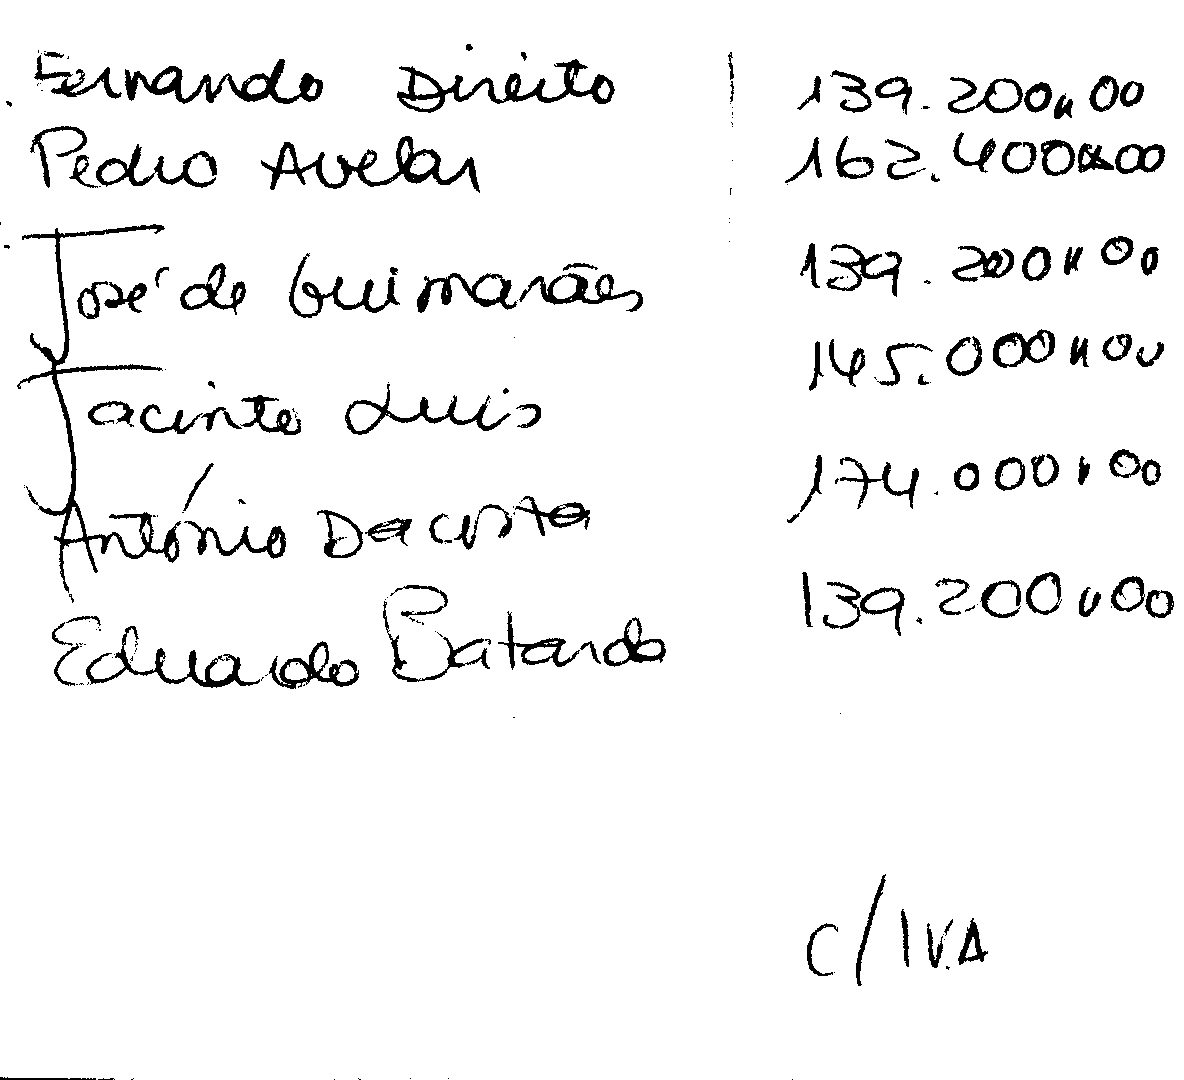 Fernando Direito 139.200,,00
Pedro Avelar 162.400,,00
José de Guimarães 139.200,,00
Jacinto Luis 145.000,,00
António Dacosta 174.000,,00
Eduardo Batarda 139.200,,00
C/IVA